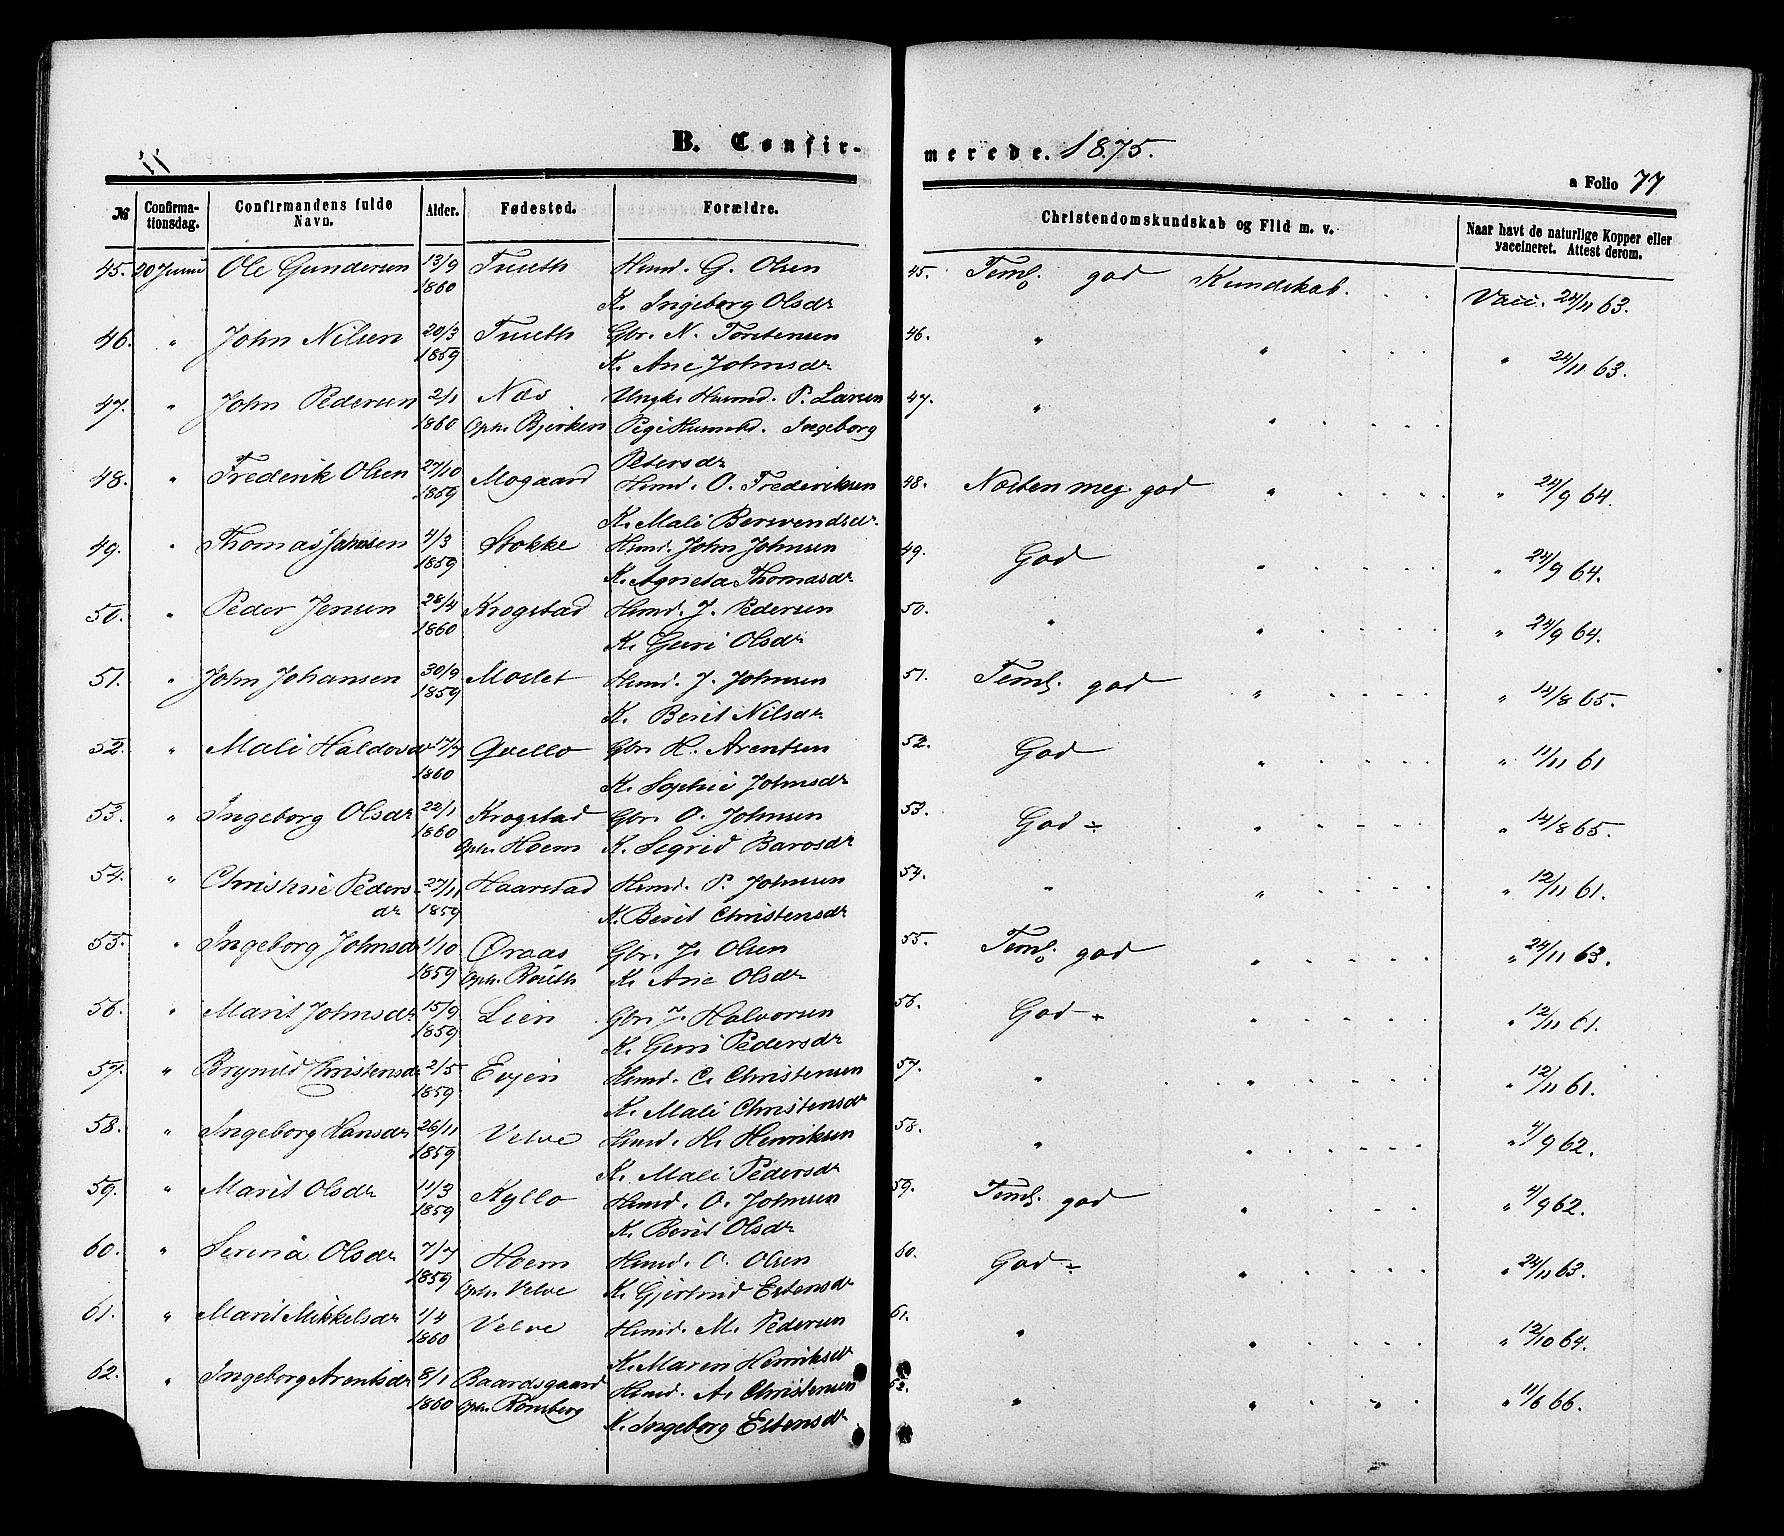 B. Confir-
merede. 1875.
a Folio 77
№ Confirma-tionsdag. Confirmandens fulde Navn. Alder. Fødested. Forældre. Christendomskundskab og Flid m. v. Naar havt de naturlige Kopper eller vaccineret. Attest derom.
45. 20 Juni Ole Gundersen 13/9 Tuseth Huusmd. G. Olsen 45. Teml. god Kundskab. Vacc. 24/11 63.
1860 K. Ingeborg Olsdr
46. " John Nilsen 20/3 Tuseth Gbr. N. Torstensen 46. " " " 24/11 63.
1859 K. Ane Johnsdr
47. " John Pedersen 2/1 Næs Ungk. Huusmd. P. Larsen 47. " "
1860 Oph. Bjerken Pige Ingeborg
Petersdr
48. " Frederik Olsen 27/10 Mogaard Hmd. O. Frederiksen 48. Næsten meg. god " " 24/9 64.
1859 K. Mali Berendsdr.
49. " Thomas Johnsen 4/3 Stokke Hmd. John Johnsen 49. God " " 24/9 64.
1859 K. Agneta Thomasdr
50. " Peder Jensen 28/4 Krogstad Hmd. J. Pedersen 50. " " " 24/9 64.
1860 K. Guri Olsdr
51. " John Johansen 30/9 Moslet Hmd. J. Johnsen 51. Teml. god " " 14/8 65.
1859 K. Berit Nilsdr
52. " Mali Haldovdr 17/7 Qvello Gbr. H. Arentsen 52. God " " 11/11 61
1860 K. Sophie Johnsdr
53. " Ingeborg Olsdr 22/1 Krogstad Gbr. O. Johnsen 53. God ÷ " " 14/8 65.
1860 Oph. Hoem K. Sigrid Barosdr
54. " Christine Peders- 27/11 Haarstad Hmd. P. Johnsen 54. " " " 12/11 61.
dr 1859 K. Berit Christensdr
55. " Ingeborg Johnsdr 1/10 Øraas Gbr. J. Olsen 55. Teml. god " " 24/11 63.
1859 Oph. K. Ane Olsdr
56. " Marit Johnsdr 15/9 Lien Gbr. J. Halvorsen 56. God ÷ " " 12/11 61.
1859 K. Guri Pedersdr
57. " Brynild Christensdr 2/5 Evjen Hmd. C. Christensen 57. " " " 12/11 61.
1859 K. Mali Christensdr
58. " Ingeborg Hansdr 26/11 Velve Hmd. H. Henriksen 58. " " " 4/9 62.
1859 K. Mali Pedersdr
59. " Marit Olsdr 11/3 Kyllo Hmd. O. Johnsen 59. Teml. god " " 4/9 62.
1859 K. Berit Olsdr
60. " Serina Olsdr 7/7 Hoem Hmd. O. Olsen 60. God ÷ " " 24/11 63.
1859 Oph. Velve K. Gjertrud Estensdr
61. " Marit Mikkelsdr 1/4 Velve Hmd. M. Pedersen 61. " " " 12/10 64.
1860 K. Maren Henriksdr
62. " Ingeborg Arentsdr 8/1 Baardsgaard Hmd. A. Christensen 62. " " " 11/6 66.
1860 Oph. Rønsberg K. Ingeborg Estensdr